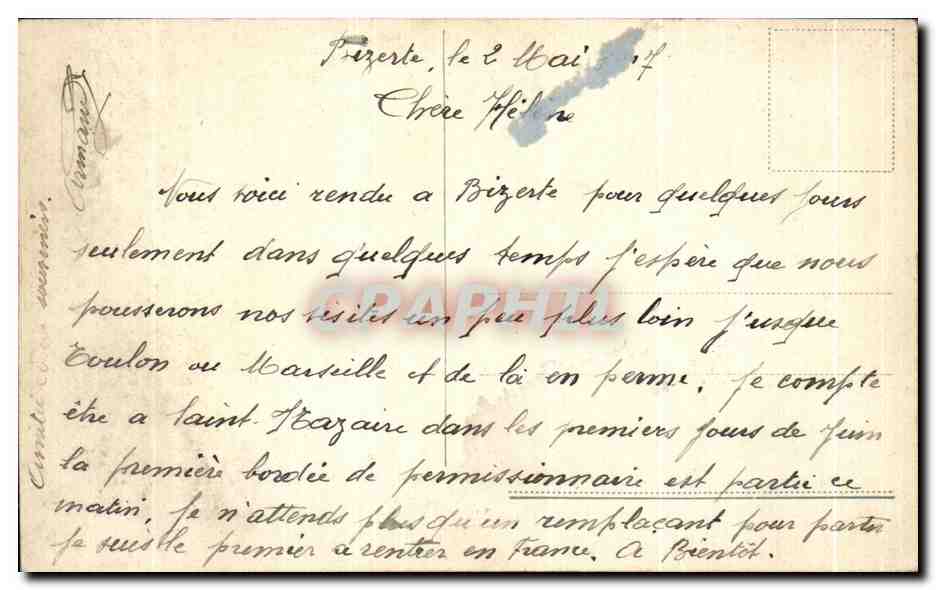 Bizerte, le 2 Mai 7
Chère Hélène
Nous voici rendu a Bizerte pour quelques jours
seulement dans quelques temps j'espère que nous
pousserons nos visites un peu plus loin j'usque
Toulon ou Marseille et de là en perme, je compte
être a Saint-Nazaire dans les premiers jours de Juin
la première bordée de permissionnaire est partie ce
matin, je n'attends plus qu'un remplaçant pour partir
je suis le premier a rentrer en France. A Bientôt.
Amitié
Armand
CPAPHIL